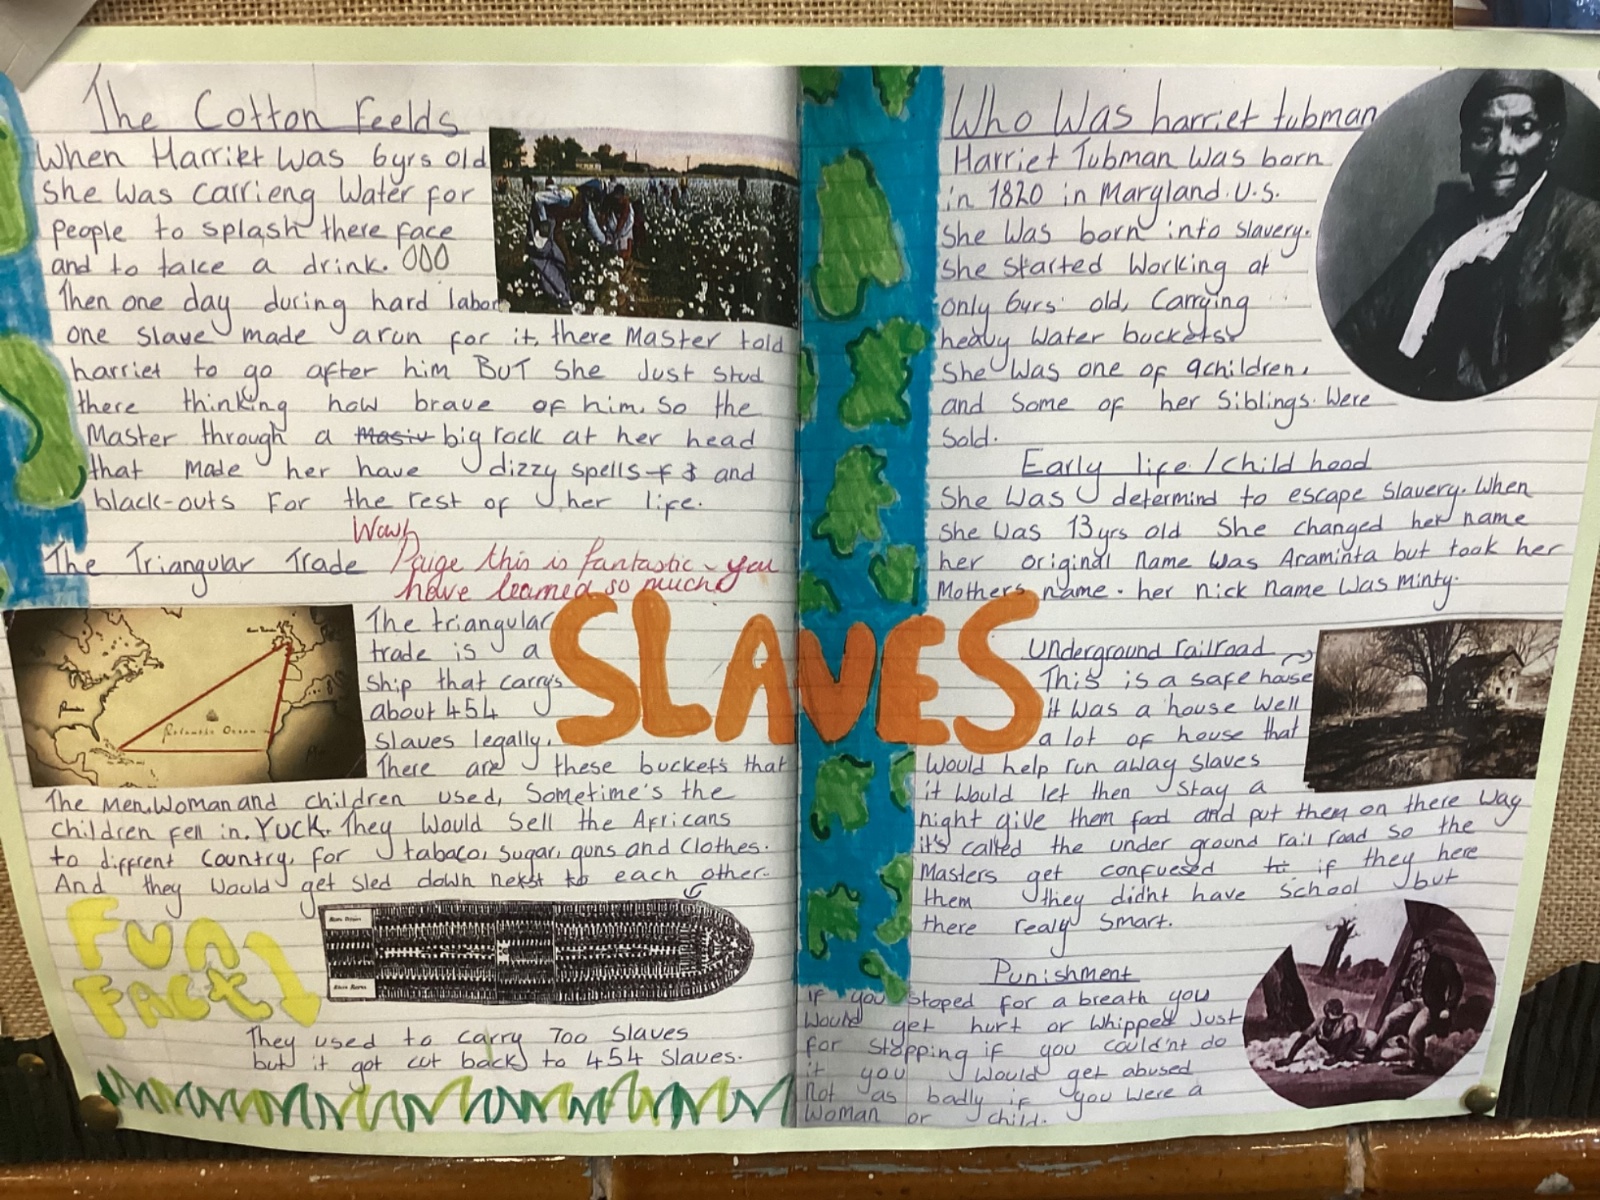 The Cotton Feelds
When Harriet Was 6yrs old
she Was carrieng Water for
people to splash there face
and to take a drink.
Then one day during hard labor
one slave made a run for it, there Master told
harriet to go after him BUT She Just stud
there thinking how brave of him. So the
Master through a big rock at her head
that made her have dizzy spells and
black-outs For the rest of her life.
Wow
Paige this is fantastic - you
have learned so much
The Triangular Trade
The triangular
trade is a
Ship that carrys
about 454
slaves legally.
There are these buckets that
The Men, Woman and children used, Sometime's the
children fell in. YUCK. They Would Sell the Africans
to diffrent country, for tabaco, sugar, guns and clothes.
And they Would get sled down next to each other.
Atlantic Ocean
Fun
Fact
They used to carry 700 slaves
but it got cut back to 454 slaves.
SLAVES
Who Was harriet tubman
Harriet Tubman Was born
in 1820 in Maryland. U.S.
She Was born into slavery.
She Started Working at
only 6yrs old, Carrying
heavy Water buckets.
She Was one of 9children,
and Some of her Siblings Were
Sold.
Early life/Child hood
She Was determind to escape Slavery. When
she Was 13yrs old She changed her name
her original Name Was Araminta but took her
Mothers name. her nick name Was Minty.
Underground railroad
This is a safe house
it Was a house Well
a lot of house that
Would help run away slaves
it Would let then Stay a
night give them food and put them on there Way
it's called the under ground rail road so the
Masters get confuesed if they here
them they didnt have School but
there realy smart.
Punishment
if you stoped for a breath you
Would get hurt or Whipped Just
for stopping if you could'nt do
it you Would get abused
Not as badly if you Were a
Woman or child.